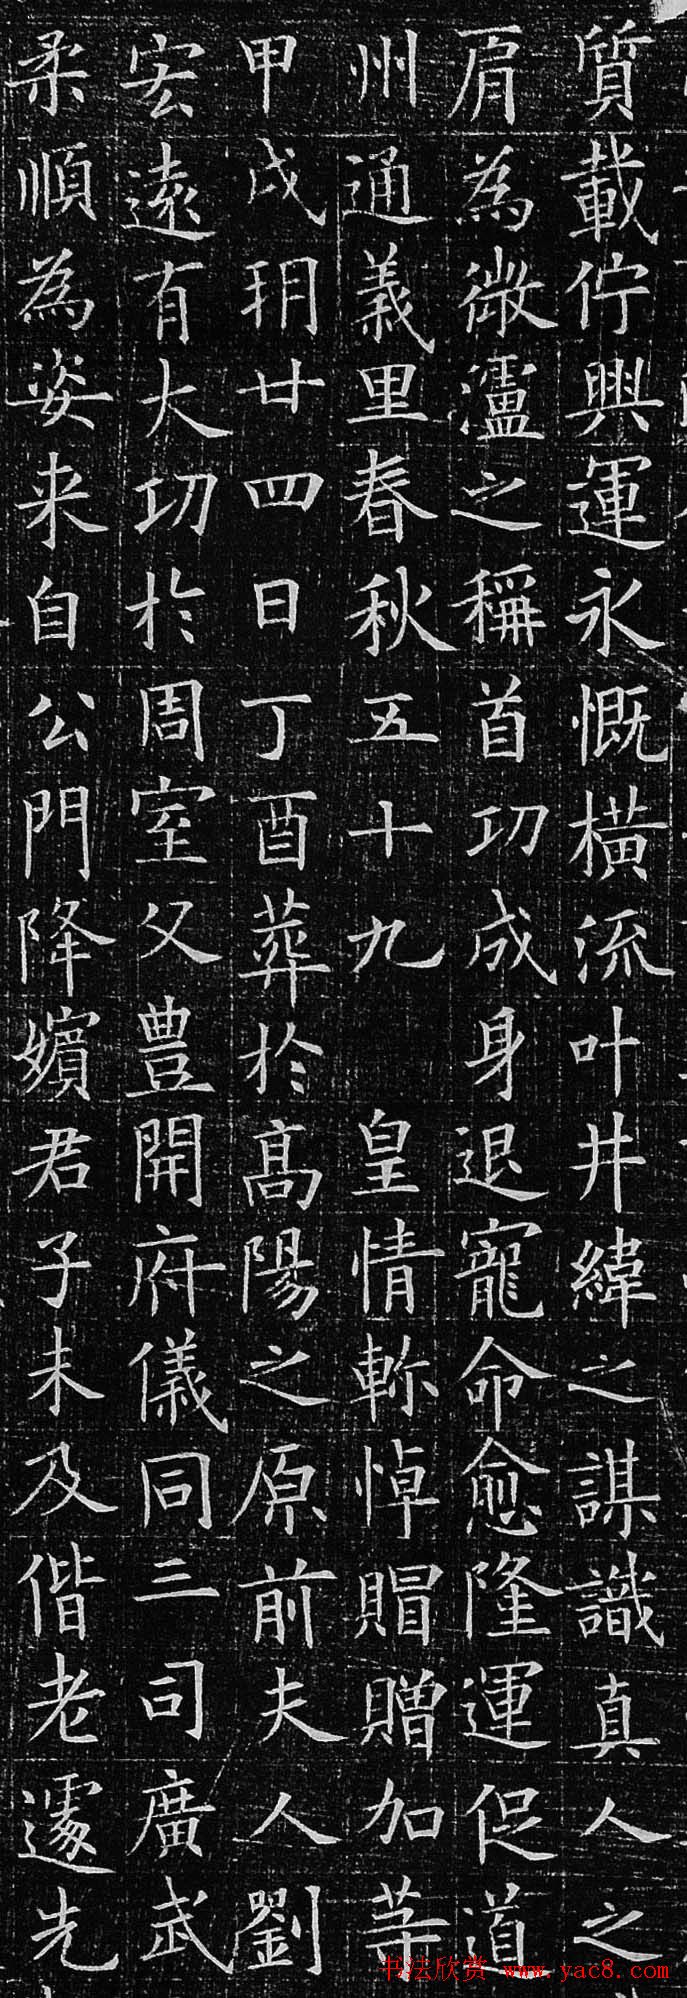 質載佇興運永慨橫流叶井緯之謀識真人之
肩為微瀘之稱首功成身退寵命愈隆運促道
州通義里春秋五十九 皇情軫悼賵贈加等
甲戌朔廿四日丁酉葬於高陽之原前夫人劉
宏遠有大功於周室父豊開府儀同三司廣武
柔順為姿来自公門降嬪君子未及偕老遽先
书法欣赏 www.yac8.com